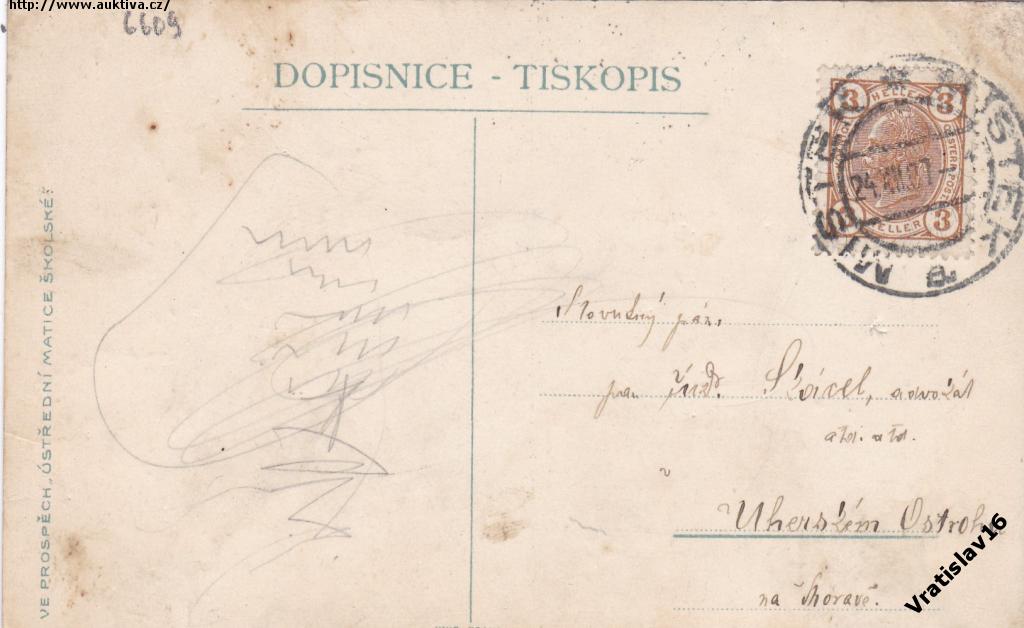 http://www.auktiva.cz/
6609
DOPISNICE - TISKOPIS
3 HELLER 3
3 HELLER 3
MISTEK MISTEK
24.XII.07
VE PROSPĚCH „ÚSTŘEDNÍ MATICE ŠKOLSKÉ“
Slovutný pán,
pan JUD. Skácel, advokát
atd. atd.
v
Uherském Ostrohu
na Moravě.
Vratislav16